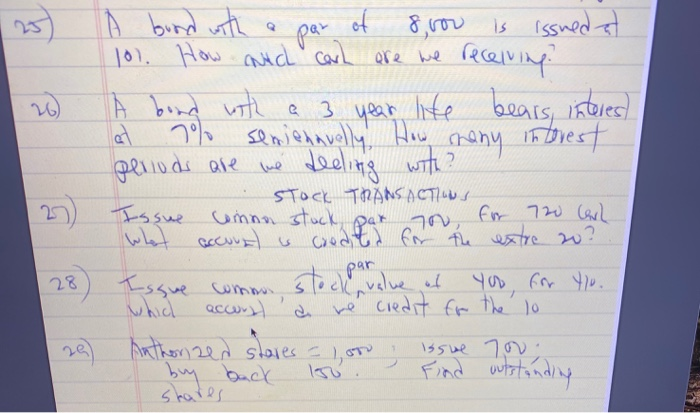 25) A bond with a par of 8,000 is issued at
101. How much cash are we receiving?
26) A bond with a 3 year life bears interest
at 7% semiennvelly. How many interest
periods are we deeling with?
STOCK TRANSACTIONS
27) Issue common stock, par 700, for 720 cash
What account is credited for the extra 20?
28) Issue common stock, par value of 400, for 410.
which account do we credit for the 10
29) Authorized shares = 1,000; issue 700;
buy back 150. Find outstanding
shares